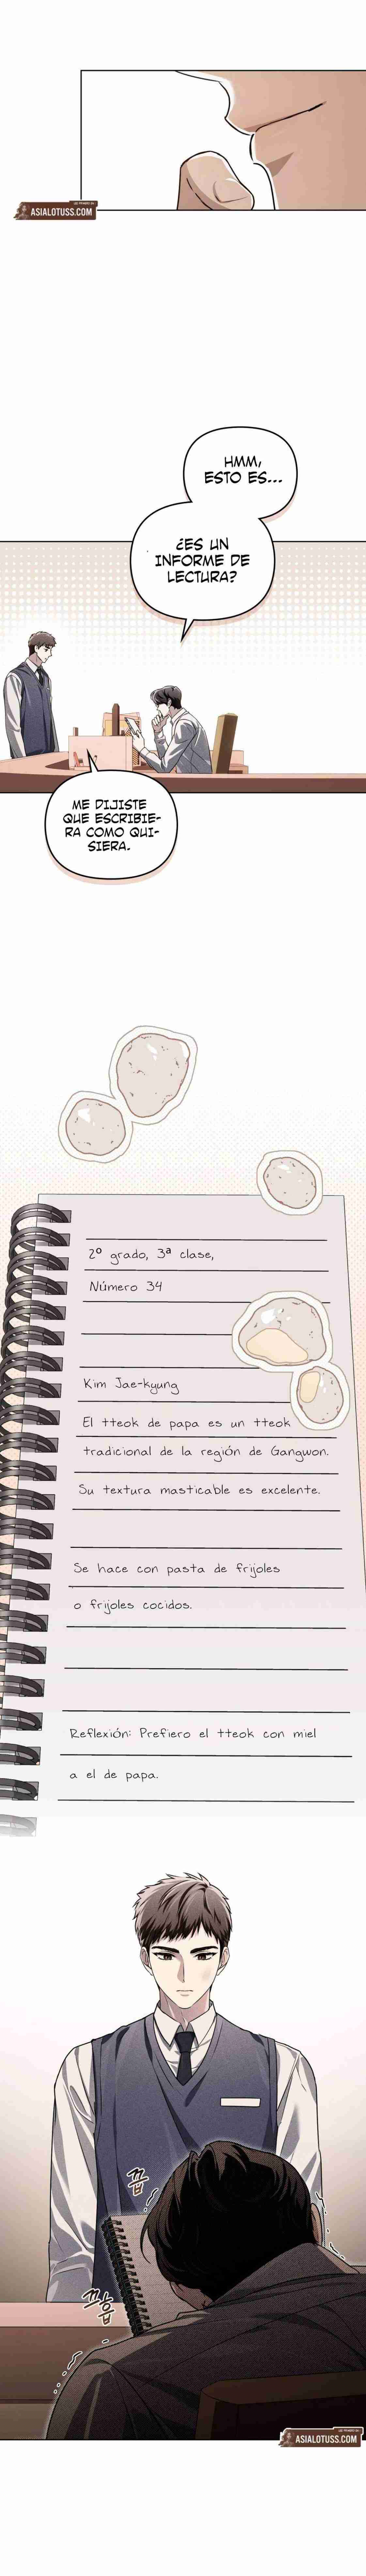 ASIALOTUSS.COM
HMM,
ESTO ES...
¿ES UN
INFORME DE
LECTURA?
ME DIJISTE
QUE ESCRIBIE-
RA COMO QUI-
SIERA.
2º grado, 3ª clase,
Número 34
Kim Jae-kyung
El tteok de papa es un tteok
tradicional de la región de Gangwon.
Su textura masticable es excelente.
Se hace con pasta de frijoles
o frijoles cocidos.
Reflexión: Prefiero el tteok con miel
a el de papa.
끕
끄읍
ASIALOTUSS.COM